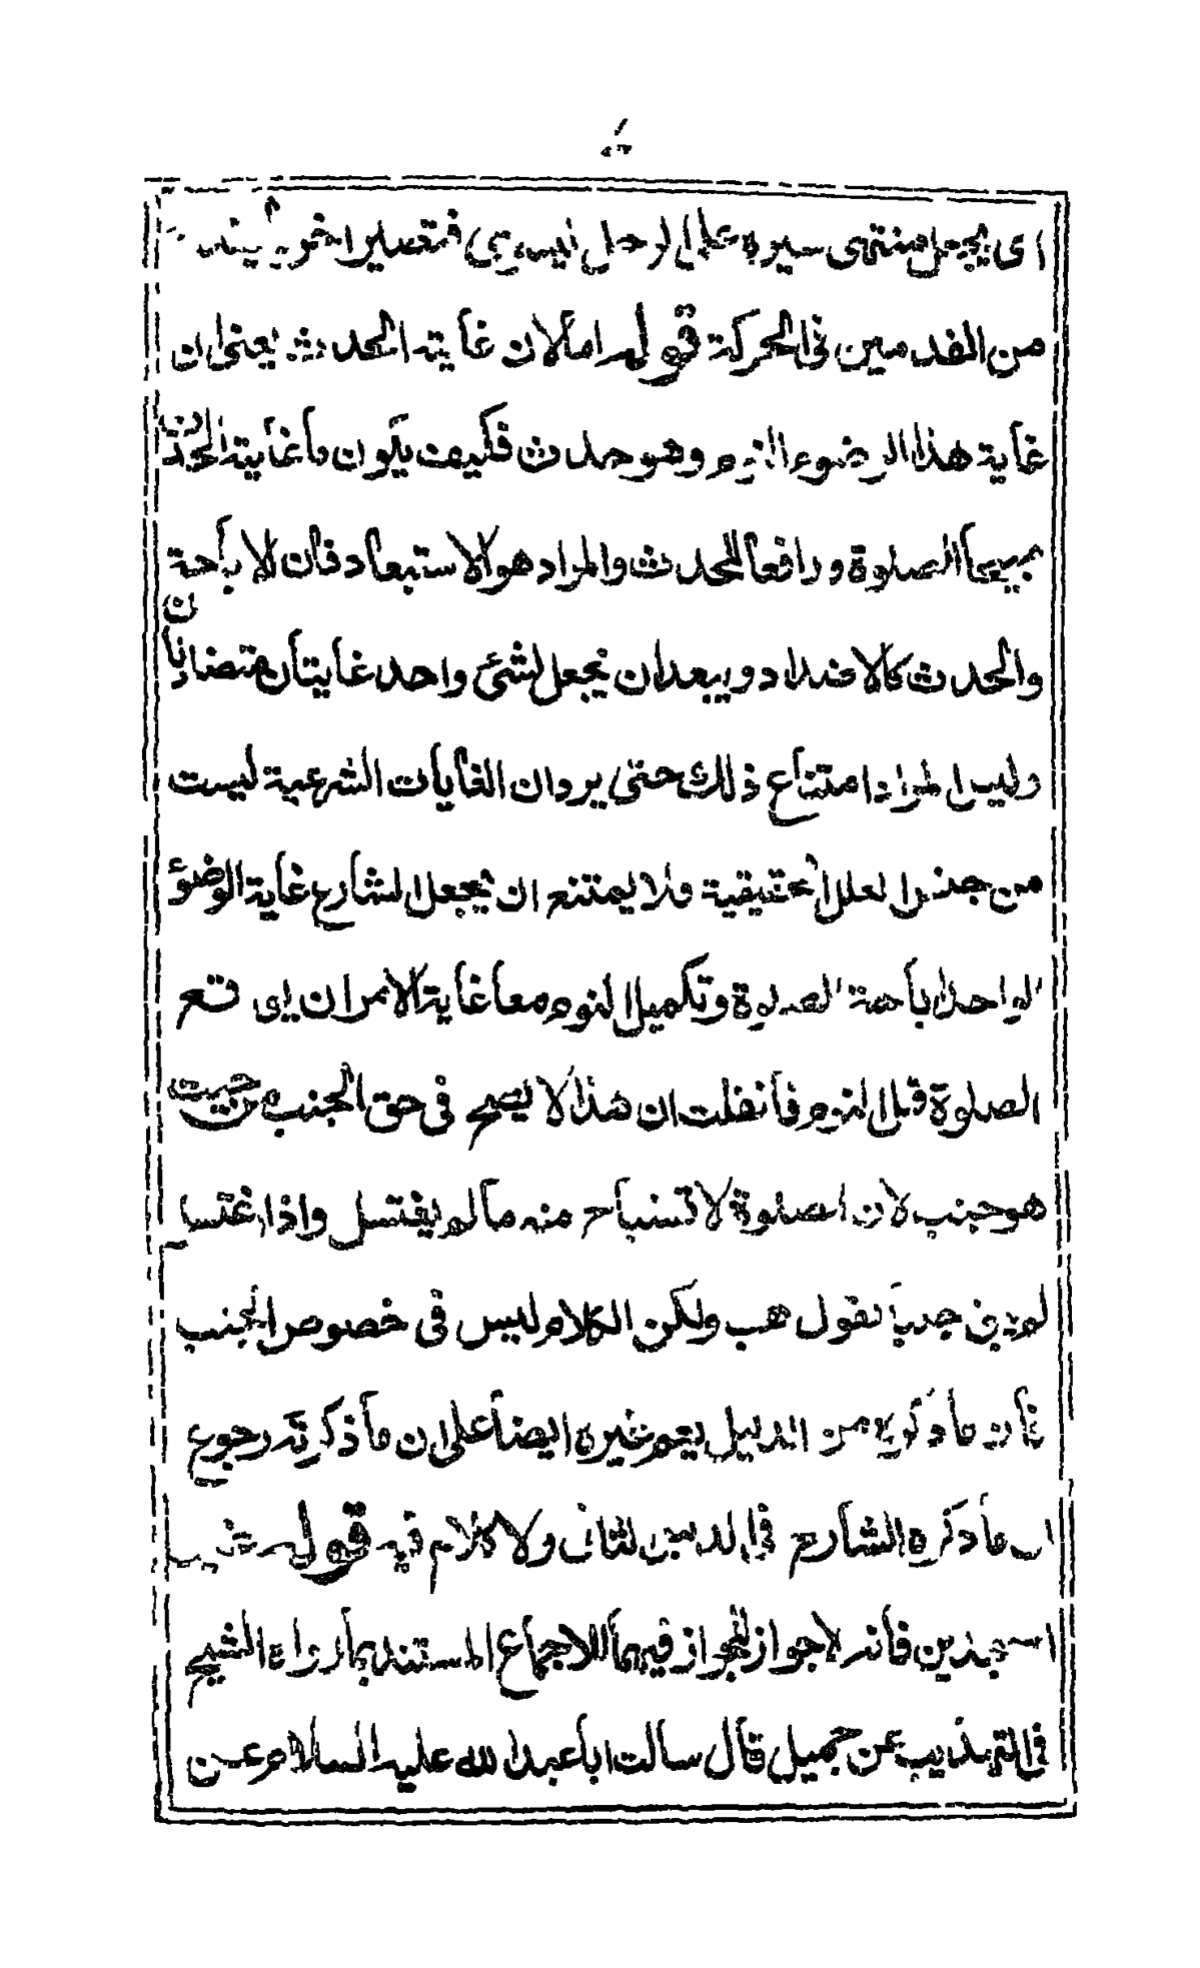 اى يجعل منتهى سيره على الرجل اليسرى فتصير
من المقدمين فى الحركة قوله اما لان غايته الحدث يعنى ان
غاية هذا الوضوء النوم وهو حدث فكيف يكون ما غايته الحدث
مبيحا الصلوة ورافعا للحدث والمراد هو الاستبعاد فان الاباحة
والحدث كالاضداد ويبعد ان يجعل لشئ واحد غايتان متضادتان
وليس المراد امتناع ذلك حتى يرد ان الغايات الشرعية ليست
من جنس العلل الحقيقية فلا يمتنع ان يجعل الشارع غاية الوضوء
الواحد اباحة الصلوة وتكميل النوم معا غاية الامر ان يقع
الصلوة قبل النوم فانقلت ان هذا لا يصح فى حق الجنب من حيث
هو جنب لان الصلوة لا تستباح منه مالم يغتسل واذا اغتسل
لم يبق جنبا نقول هب ولكن الكلام ليس فى خصوص الجنب
فان ما ذكره من الدليل يعم غيره ايضا على ان ما ذكرته رجوع
الى ما ذكره الشارح فى الدليل الثانى ولا كلام فيه قوله
المسجدين فانه لا جواز للجواز فيهما للاجماع المستند بما رواه الشيخ
فى التهذيب عن جميل قال سالت ابا عبد الله عليه السلام عن